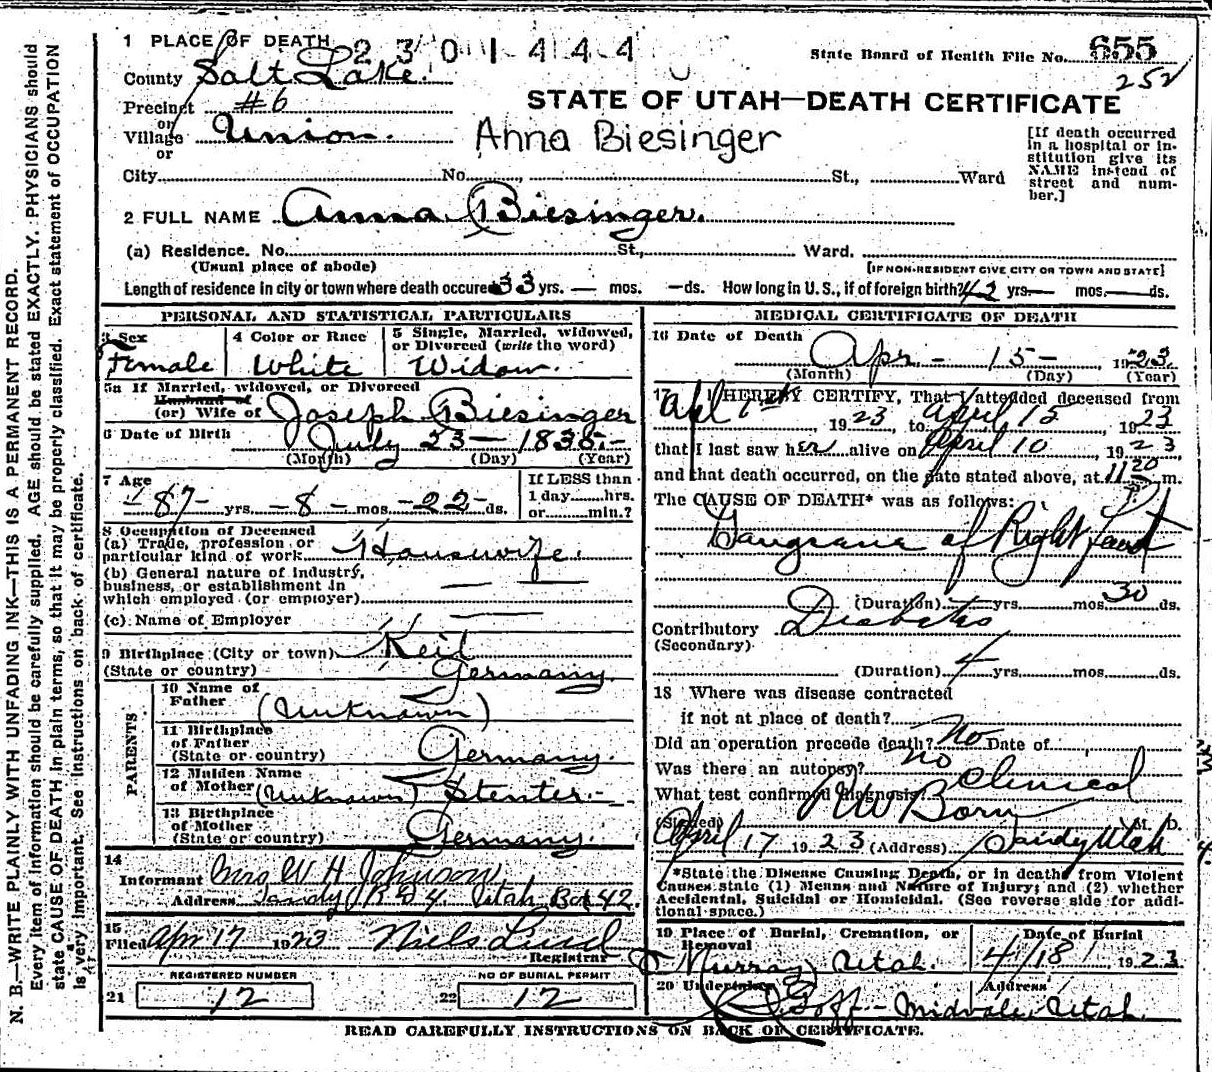 1 PLACE OF DEATH 2301444
State Board of Health File No. 655
252
County Salt Lake.
Precinct #6
or
Village Union.
or
STATE OF UTAH—DEATH CERTIFICATE
Anna Biesinger
[If death occurred in a hospital or institution give its NAME instead of street and number.]
City No. St., Ward
2 FULL NAME Anna Biesinger.
(a) Residence. No. St., Ward.
(Usual place of abode) [IF NON-RESIDENT GIVE CITY OR TOWN AND STATE]
Length of residence in city or town where death occured 33 yrs. — mos. — ds. How long in U.S., if of foreign birth? 42 yrs. — mos. — ds.
PERSONAL AND STATISTICAL PARTICULARS
3 Sex
Female
4 Color or Race
White
5 Single, Married, widowed, or Divorced (write the word)
Widow.
5a If Married, widowed, or Divorced
Husband of
(or) Wife of Joseph Biesinger
6 Date of Birth July 23 — 1835 —
(Month) (Day) (Year)
7 Age
87 yrs. — 8 — mos. — 22 — ds.
If LESS than
1 day......hrs.
or......min.?
8 Occupation of Deceased
(a) Trade, profession or
particular kind of work Housewife.
(b) General nature of industry,
business, or establishment in
which employed (or employer)
(c) Name of Employer
9 Birthplace (City or town) Keil
(State or country) Germany.
PARENTS
10 Name of
Father (Unknown)
11 Birthplace
of Father
(State or country) Germany.
12 Maiden Name
of Mother (Unknown) Stenter.-
13 Birthplace
of Mother
(State or country) Germany.
14
Informant Mrs W H Johnson.
Address Sandy R D 4. Utah Box 42.
15
Filed Apr 17 1923 Niels Lind
Registrar
REGISTERED NUMBER
21 12
NO OF BURIAL PERMIT
22 12
MEDICAL CERTIFICATE OF DEATH
16 Date of Death Apr — 15 — 1923.
(Month) (Day) (Year)
17 I HEREBY CERTIFY, That I attended deceased from
Apl 1st, 1923, to April 15, 1923
that I last saw her alive on April 10, 1923
and that death occurred, on the date stated above, at 11 20 P. m.
The CAUSE OF DEATH* was as follows:
Gangrene of Right Foot
(Duration) yrs. mos. 30 ds.
Contributory Diabetes
(Secondary)
(Duration) 4 yrs. mos. ds.
18 Where was disease contracted
if not at place of death?
Did an operation precede death? No Date of
Was there an autopsy? no
What test confirmed diagnosis? Clinical
(Signed) W Born M. D.
April 17 1923 (Address) Sandy Utah
*State the Disease Causing Death, or in deaths from Violent
Causes state (1) Means and Nature of Injury; and (2) whether
Accidental, Suicidal or Homicidal. (See reverse side for addi-
tional space.)
19 Place of Burial, Cremation, or
Removal
Murray Utah.
Date of Burial
4/18 1923
20 Undertaker Goff - Address Midvale Utah.
READ CAREFULLY INSTRUCTIONS ON BACK OF CERTIFICATE.
N. B.—WRITE PLAINLY WITH UNFADING INK—THIS IS A PERMANENT RECORD.
Every item of information should be carefully supplied. AGE should be stated EXACTLY. PHYSICIANS should
state CAUSE OF DEATH in plain terms, so that it may be properly classified. Exact statement of OCCUPATION
is very important. See instructions on back of certificate.